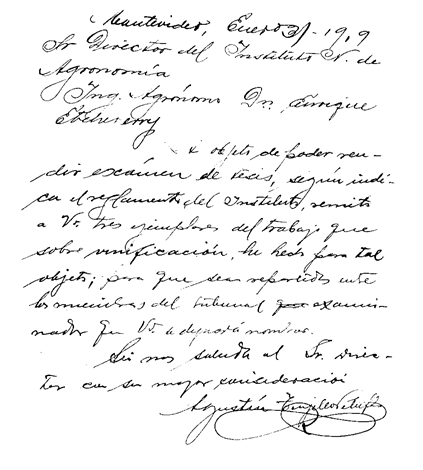 Montevideo, Enero 31-1919
Sr Director del Instituto N. de
Agronomía
Ing. Agrónomo Dn. Enrique
Etcheverry
objeto de poder ren-
dir exámen de tesis, según indi-
ca el reglamento del Instituto, remito
a Vd. tres ejemplares del trabajo que
sobre vinificación, he hecho para tal
objeto; para que sean repartidos entre
los miembros del tribunal exami-
nador que Vd. nombrar.
Sin mas saluda al Sr. Direc-
tor con su mayor consideración
Agustín